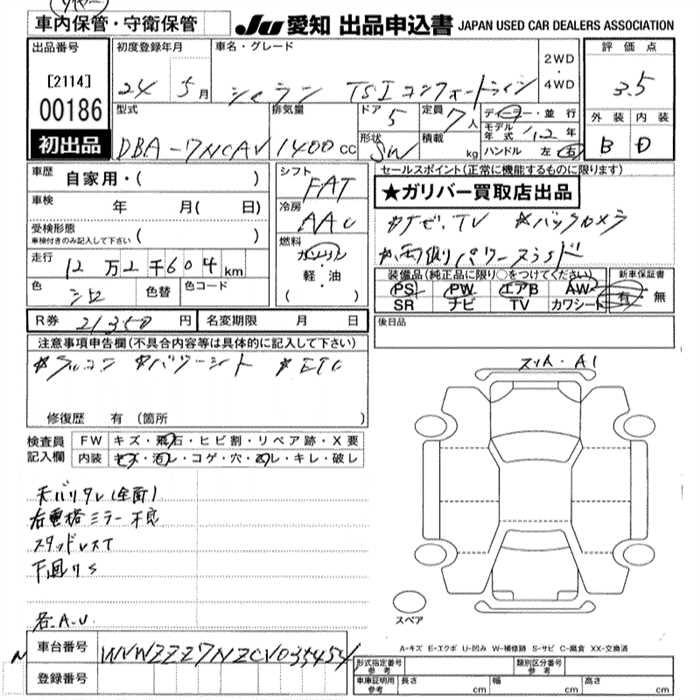 車内保管・守衛保管
JU 愛知 出品申込書 JAPAN USED CAR DEALERS ASSOCIATION
出品番号
[2114]
00186
初出品
初度登録年月
24 5月
車名・グレード
シャラン TSIコンフォートライン
2WD
・
4WD
評価点
3.5
外装 内装
B D
型式
DBA-7NCAV
排気量
1400cc
ドア 5
形状 SW
定員 7人
積載 kg
ディーラー・並行
モデル年式 '12年
ハンドル 左 右
車歴 自家用・( )
車検 年 月(日)
受検形態
車検付きのみ記入して下さい ( )
走行 12万2千604km
色 シロ 色替 色コード
シフト
FAT
冷房
AAC
燃料
ガソリン
軽・油
・( )
セールスポイント(正常に機能するものに限ります)
★ガリバー買取店出品
*ナビ、TV *バックカメラ
*両側パワースライド
装備品(純正品に限り○をつけてください)
PS PW エアB AW
SR ナビ TV カワシート
新車保証書
有・無
R券 21350円 名変期限 月 日
後日品
注意事項申告欄(不具合内容等は具体的に記入して下さい)
*アルコン *パワーシート *ETC
修復歴 有 (箇所 )
検査員記入欄
FW キズ・飛石・ヒビ割・リペア跡・X要
内装 キズ・汚レ・コゲ・穴・凹レ・キレ・破レ
天バリタレ(全面)
右電格ミラー不良
スタッドレスT
下回りS
各A.U
スリキ・A1
スペア
A-キズ E-エクボ U-凹み W-補修跡 S-サビ C-腐食 XX-交換済
車台番号 WVWZZZ7NZCV035454
登録番号
形式指定番号 参考
類別区分番号 参考
車庫証明用 参考 長さ cm 幅 cm 高さ cm